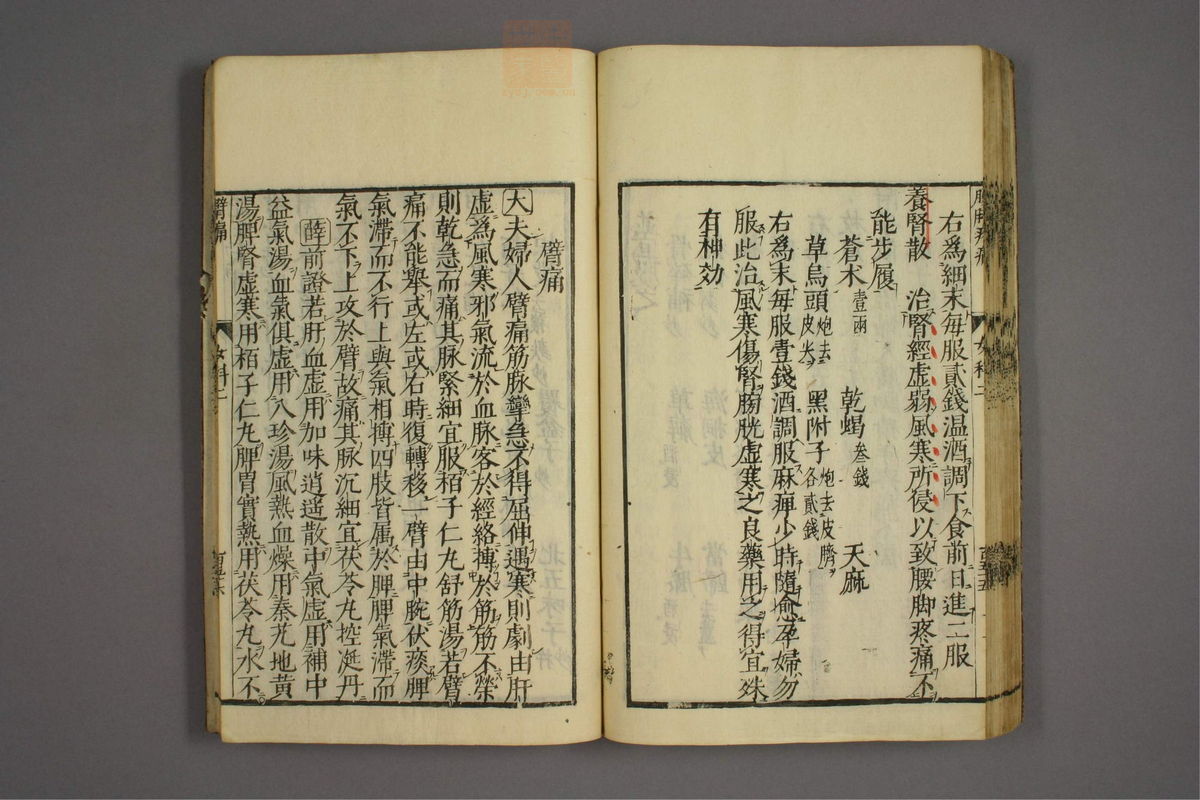 右爲細末每服貳錢温酒調下食前日進二服
養腎散　治腎經虛弱風寒所侵以致腰脚疼痛不
能步履
蒼朮壹兩　乾蝎叁錢　天麻
草烏頭炮去皮尖　黑附子炮去皮臍各貳錢
右爲末每服壹錢酒調服麻痺少時隨愈孕婦勿
服此治風寒傷腎膀胱虛寒之良藥用之得宜殊
有神効
臂痛
大夫婦人臂痛筋脉攣急不得屈伸遇寒則劇由肝
虛爲風寒邪氣流於血脉客於經絡搏於筋筋不榮
則乾急而痛其脉緊細宜服栢子仁丸舒筋湯若臂
痛不能舉或左或右時復轉移一臂由中脘伏痰脾
氣滯而不行上與氣相搏四肢皆属於脾脾氣滯而
氣不下上攻於臂故痛其脉沉細宜茯苓丸控涎丹
薛前證若肝血虛用加味逍遥散中氣虛用補中
益氣湯血氣俱虛用八珍湯風熱血燥用秦艽地黄
湯脾腎虛寒用栢子仁丸脾胃實熱用茯苓丸水不
臂痛
女科二